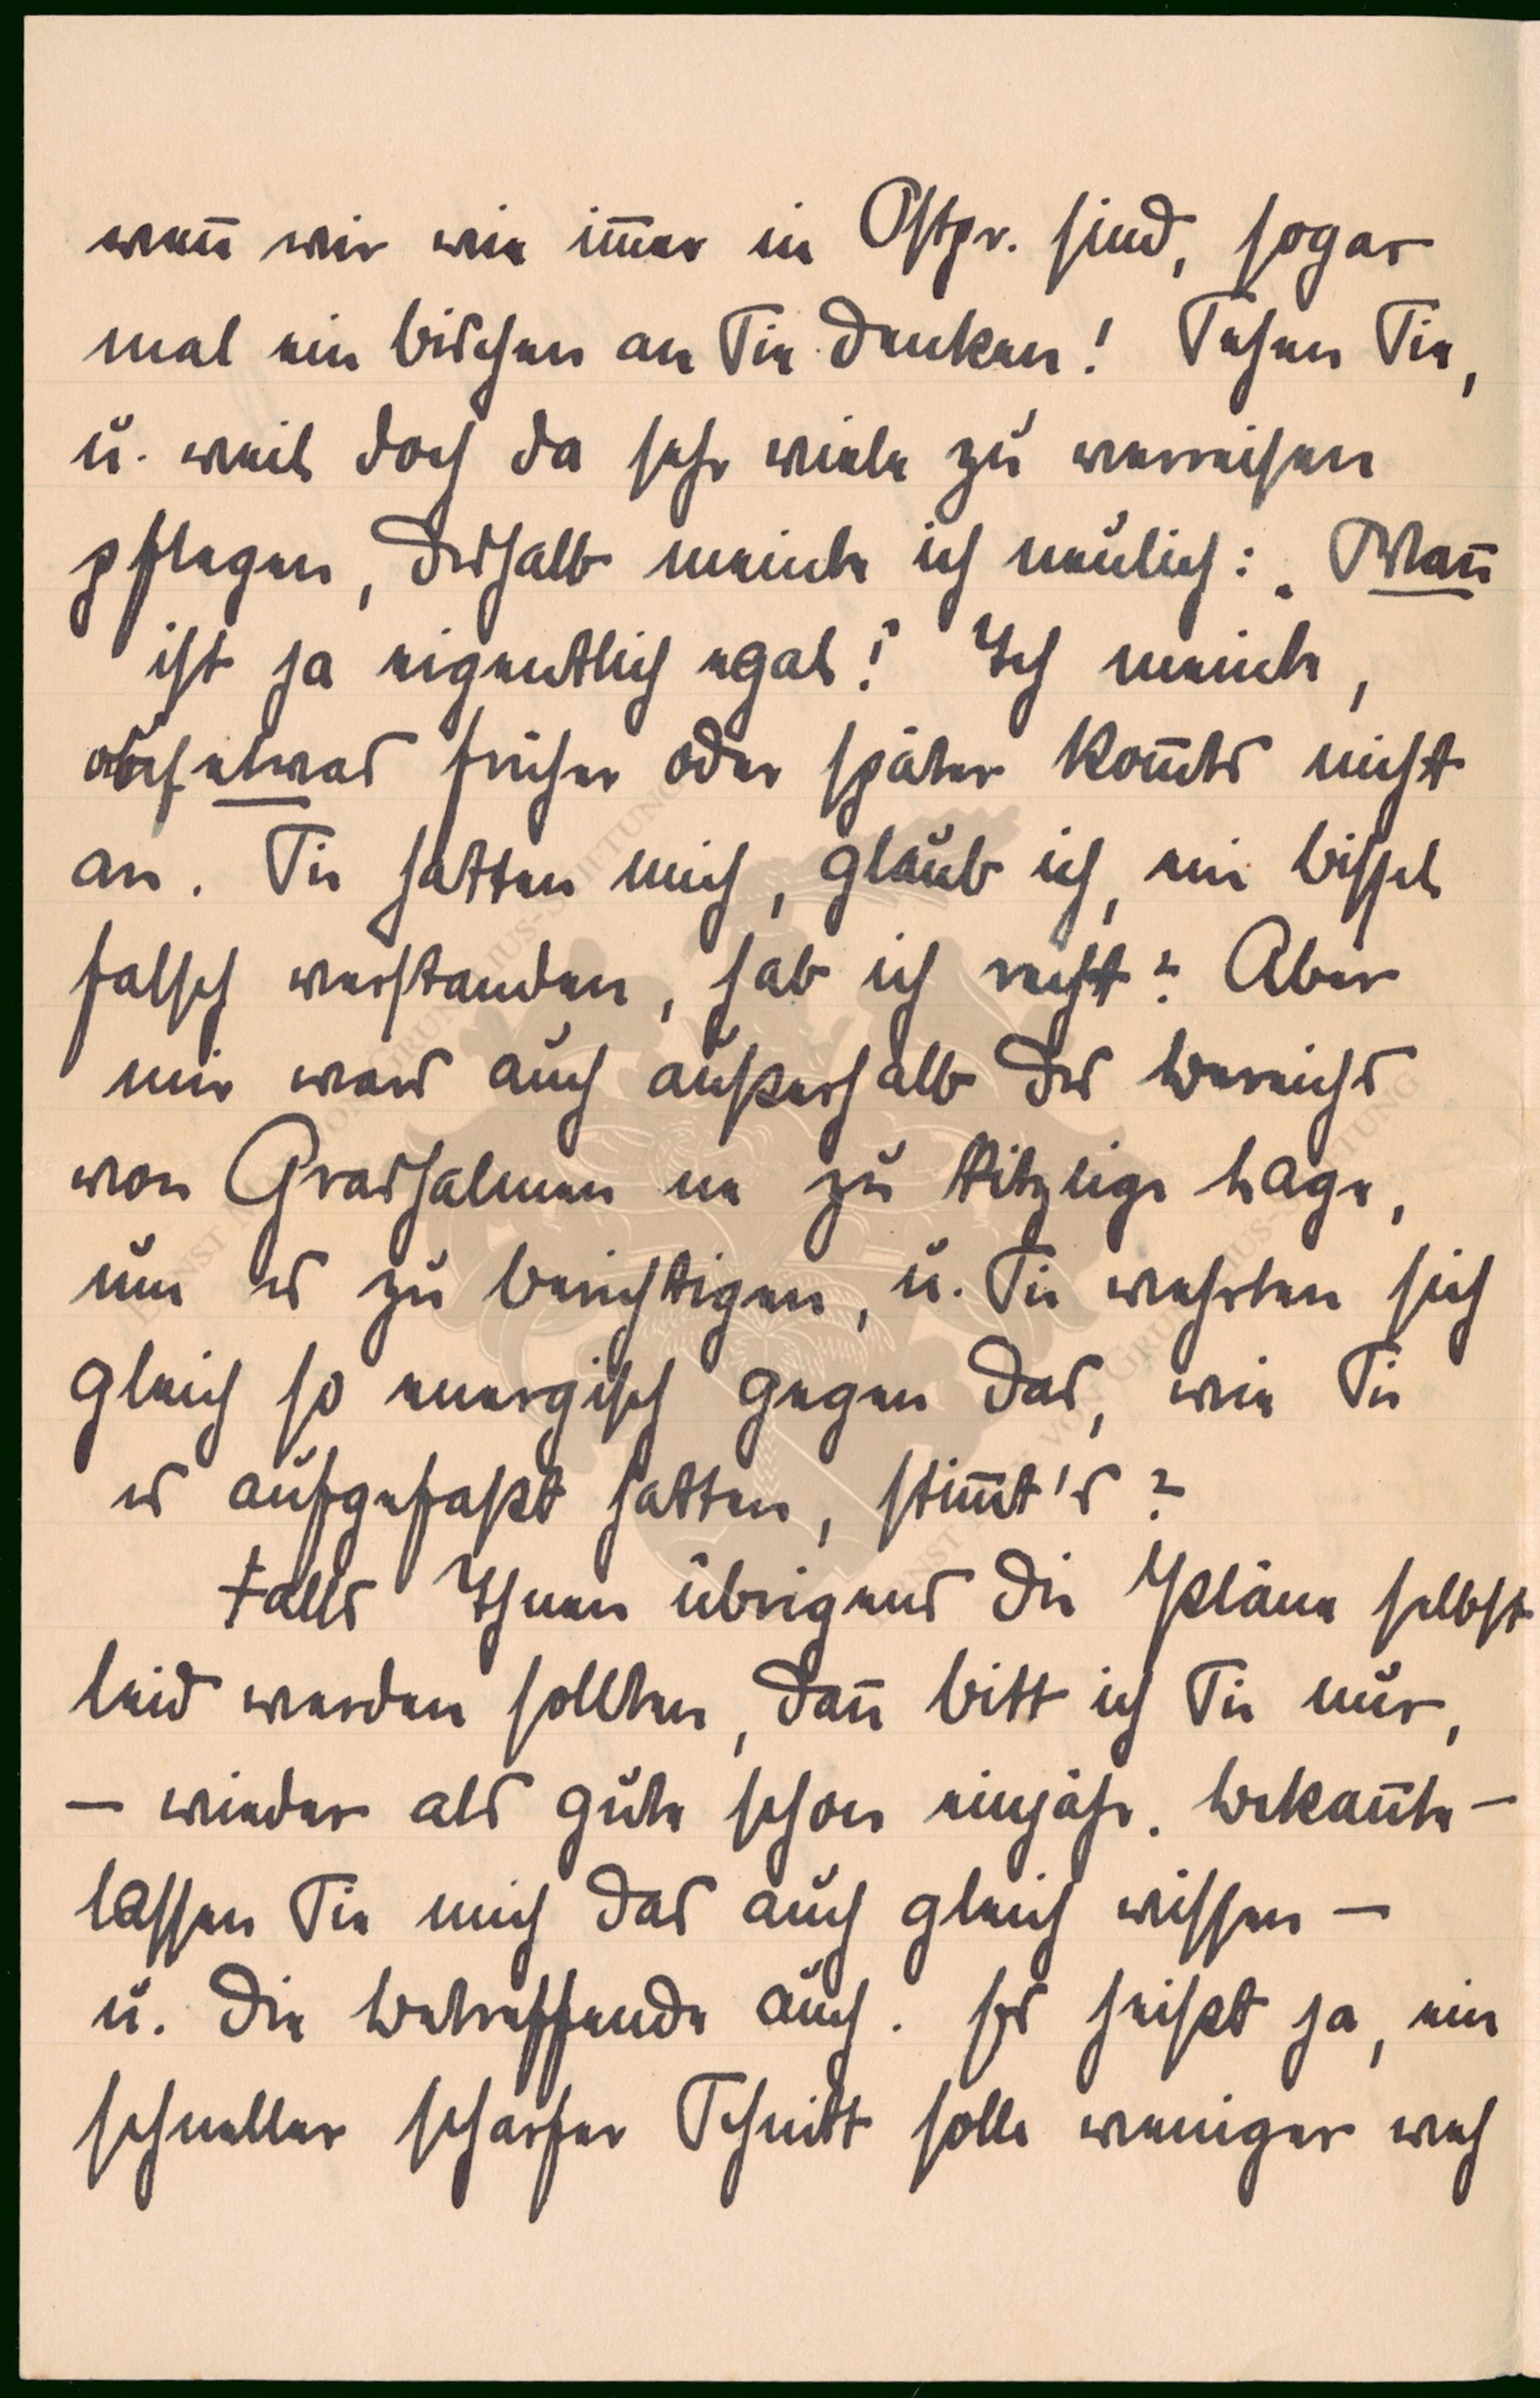 wen̅ wir wie im̅er in Ostpr. sind, sogar
mal ein bischen an Sie denken! Sehen Sie,
u. weil doch da sehr viele zu verreisen
pflegen, deshalb meinte ich neulich: „Wan̅
ist ja eigentlich egal!" Ich meinte,
aufs etwas früher oder später kom̅ts nicht
an. Sie hatten mich, glaub ich, ein bissel
falsch verstanden, hab ich recht? Aber
mir wars auch außerhalb des Bereichs
von Grashalmen ne zu kitzlige Lage,
um es zu berichtigen, u. Sie wehrten sich
gleich so energisch gegen das, wie Sie
es aufgefaßt hatten, stim̅t's?
Falls Ihnen übrigens die Pläne selbst
leid werden sollten, dan̅ bitt ich Sie nur,
– wieder als gute schon einjähr. Bekan̅te –
lassen Sie mich das auch gleich wissen –
u. die Betreffende auch. Es heißt ja, ein
schneller scharfer Schnitt solle weniger weh
ERNST VON GRUNELIUS-STIFTUNG
ERNST VON GRUNELIUS-STIFTUNG